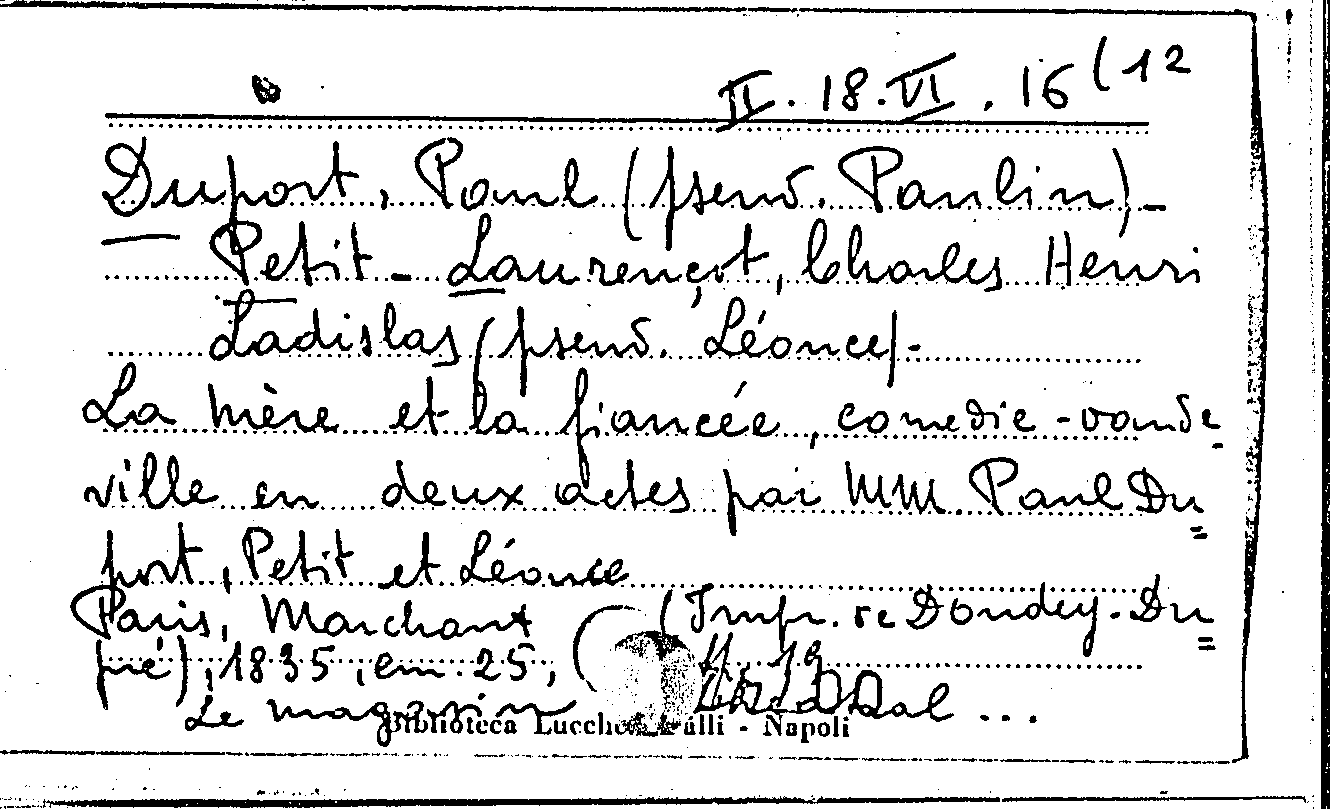 II. 18. VI. 16(12
Duport, Paul (pseud. Paulin) -
Petit - Laurençot, Charles Henri
Ladislas (pseud. Léonce). -
La mère et la fiancée, comedie-vaude
ville en deux actes par MM. Paul Du
port, Petit et Léonce
Paris, Marchant (Impr. de Dondey-Du
pré), 1835, em. 25,
Le magasin
Biblioteca Lucchesi Palli - Napoli